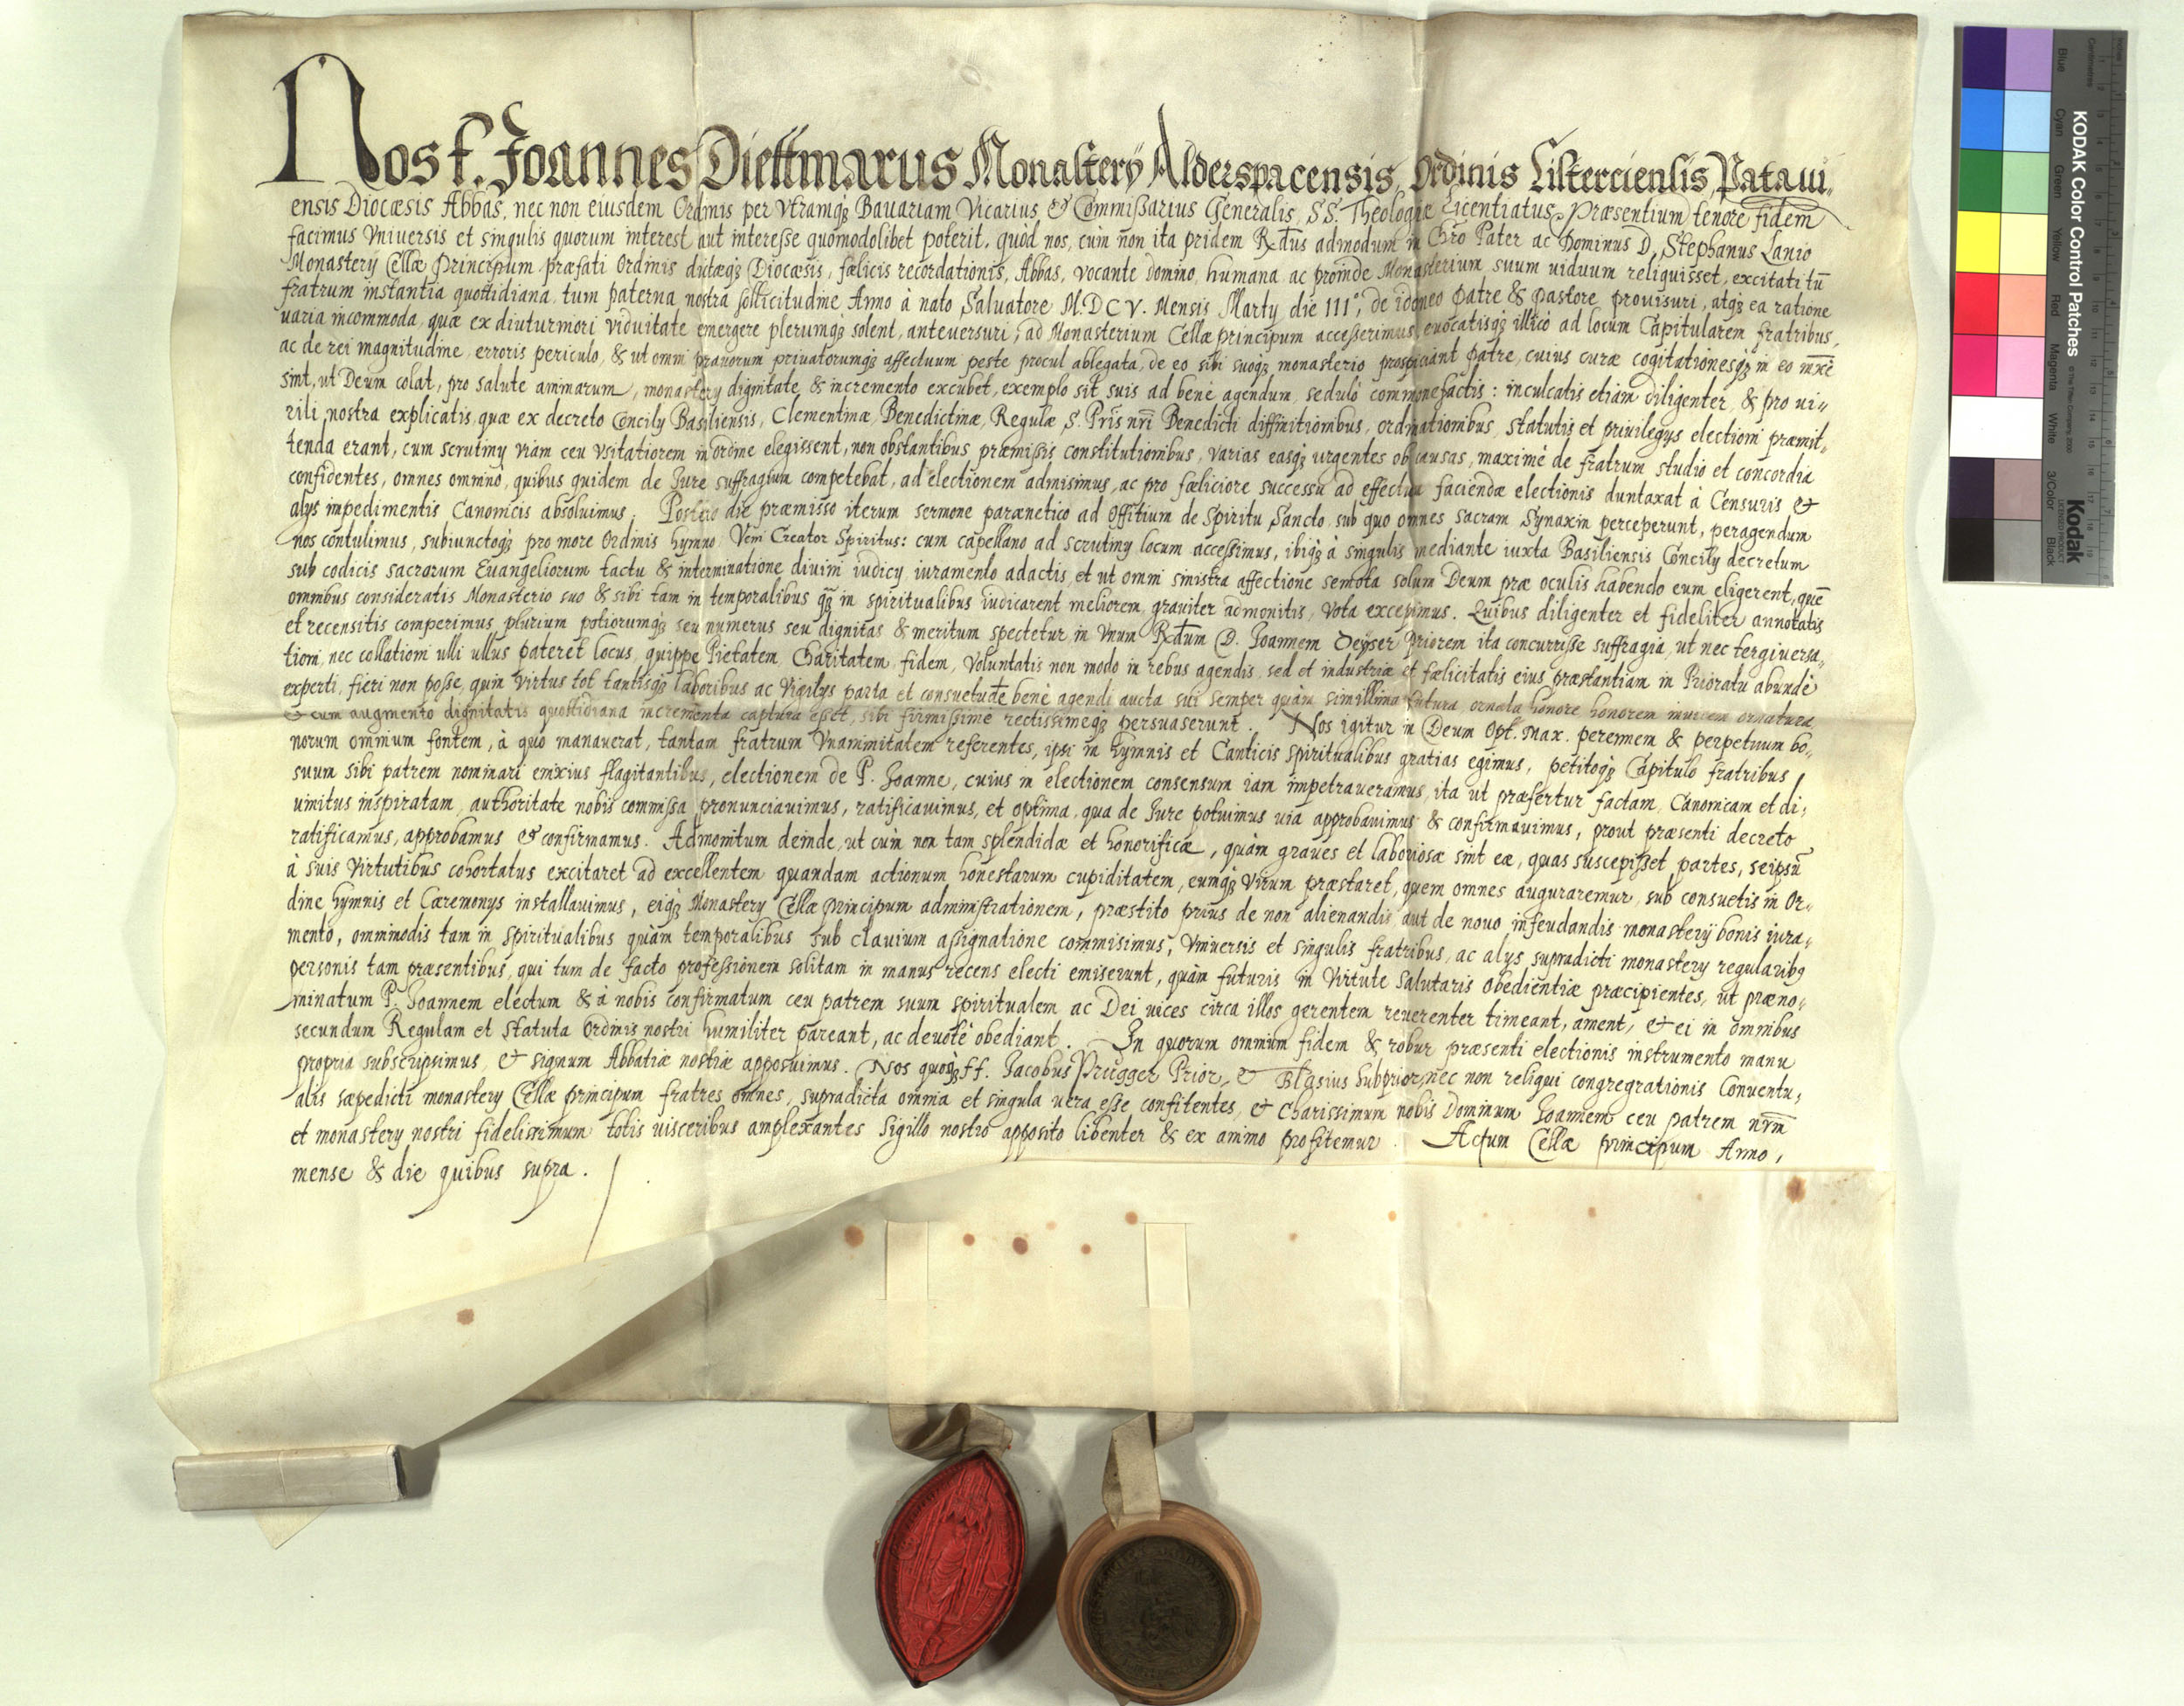 Nos f. Joannes Dietmarus Monasterÿ Alderspacensis, Ordinis Cisterciensis, Pataui„
ensis Diocæsis Abbas, nec non eiusdem Ordinis per Vtramqȝ Bauariam Vicarius & Commißarius Generalis, SS. Theologiæ Licentiatus, Præsentium tenore fidem
facimus Vniuersis et singulis quorum interest aut interesse quomodolibet poterit. quòd nos, cùm non ita pridem Rdus admodum in Chro Pater ac Dominus D. Stephanus Lanio
Monasterÿ Cellæ Principum præfati Ordinis dictæqȝ Diocæsis, fælicis recordationis, Abbas, vocante domino, humana ac proinde Monasterium suum uiduum reliquisset, excitati tū
fratrum instantia quottidiana, tum paterna nostra sollicitudine Anno à nato Saluatore M.DC V. Mensis Martÿ die III°, de idoneo patre & pastore prouisuri, atqȝ ea ratione
uaria incommoda, quæ ex diuturniori viduitate emergere plerumqȝ solent, anteuersuri, ad Monasterium Cellæ principum accesserimus, euocatisqȝ illicò ad locum Capitularem fratribus,
ac de rei magnitudine, erroris periculo, & ut omni prauorum priuatorumqȝ affectuum peste procul ablegata, de eo sibi suoqȝ monasterio prospiciant patre, cuius curæ cogitationesqȝ in eo
sint, ut Deum colat, pro salute animarum, monasterÿ dignitate & incremento excubet, exemplo sit suis ad bene agendum, sedulò commonefactis: inculcatis etiam diligenter, & pro ui„
rili nostra explicatis, quæ ex decreto Concilÿ Basiliensis, Clementinæ, Benedictinæ, Regulæ S. Pris nri Benedicti diffinitionibus, ordinationibus, statutis et priuilegÿs electioni præmit„
tenda erant, cum scrutinÿ viam ceu vsitatiorem in ordine elegissent, non obstantibus præmissis constitutionibus, varias easqȝ urgentes ob causas, maximè de fratrum studio et concordia
confidentes, omnes omninò, quibus quidem de Jure suffragium competebat, ad electionem admisimus, ac pro fæliciore successu ad effectum faciendæ electionis duntaxat à Censuris &
alÿs impedimentis Canonicis absoluimus. Postero die præmisso iterum sermone parænetico ad Offitium de Spiritu Sancto, sub quo omnes sacram Synaxin perceperunt, peragendum
nos contulimus, subiunctoqȝ pro more Ordinis hymno Veni Creator Spiritus: cum capellano ad scrutinÿ locum accessimus, ibiqȝ à singulis mediante iuxta Basiliensis Concilÿ decretum
sub codicis sacrorum Euangeliorum tactu & interminatione diuini iudicÿ iuramento adactis, et ut omni sinistra affectione semota solum Deum præ oculis habendo eum eligerent, quē
omnibus consideratis Monasterio suo & sibi tam in temporalibus qȝ in spiritualibus iudicarent meliorem, grauiter admonitis, Vota excepimus. Quibus diligenter et fideliter annotatis
et recensitis comperimus plurium potiorumqȝ seu numerus seu dignitas & meritum spectetur in Vnum Rdum D. Joannem Deyser priorem ita concurrisse suffragia, ut nec tergiuersa„
tioni, nec collationi ulli ullus pateret locus, quippe Pietatem, Charitatem, fidem, Voluntatis non modo in rebus agendis, sed et industriæ et fælicitatis eius præstantiam in Prioratu abundè
experti, fieri non posse, quin virtus tot tantisqȝ laboribus ac Vigilÿs parta et consuetude bene agendi aucta sui semper quàm simillima futura, ornata honore honorem inuicem ornatura
& cum augmento dignitatis quottidiana incrementa captura esset, sibi firmissimè rectissimeqȝ persuaserunt. Nos igitur in Deum Opt. Max. perennem & perpetuum bo„
norum omnium fontem, à quo manauerat, tantam fratrum Vnanimitatem referentes, ipsi in hymnis et Canticis spiritualibus gratias egimus, petitoqȝ Capitulo fratribus
suum sibi patrem nominari enixius flagitantibus, electionem de P. Joanne, cuius in electionem consensum iam impetraueramus, ita ut præfertur factam, Canonicam et di„
uinitus inspiratam, authoritate nobis commissa pronunciauimus, ratificauimus, et optima, qua de Jure potuimus uia approbauimus & confirmauimus, prout præsenti decreto
ratificamus, approbamus & confirmamus. Admonitum deinde, ut cùm non tam splendidæ et honorificæ, quàm graues et laboriosæ sint eæ, quas suscepisset partes, seipsū
à suis Virtutibus cohortatus excitaret ad excellentem quandam actionum honestarum cupiditatem, eumqȝ Virum præstaret, quem omnes auguraremur, sub consuetis in Or„
dine hymnis et Cæremonÿs installauimus, eiqȝ Monasterÿ Cellæ Principum administrationem, præstito prius de non alienandis aut de nouo infeudandis monasterÿ bonis iura„
mento, omnimodis tam in spiritualibus quàm temporalibus sub clauium assignatione commisimus, Vniuersis et singulis fratribus, ac alÿs supradicti monasterÿ regularibȝ
personis tam præsentibus, qui tum de facto professionem solitam in manus recens electi emiserunt, quàm futuris in Virtute salutaris obedientiæ præcipientes, ut præno„
minatum P. Joannem electum & à nobis confirmatum ceu patrem suum spiritualem ac Dei uices circa illos gerentem reuerenter timeant, ament, & ei in omnibus
secundum Regulam et statuta Ordinis nostri humiliter pareant, ac deuotè obediant. In quorum omnium fidem & robur præsenti electionis instrumento manu
propria subscripsimus, & signum Abbatiæ nostræ apposuimus. Nos quoqȝ ff. Jacobus Prugger Prior, & Blasius Subprior, nec non reliqui congregrationis Conuentu„
alis sæpedicti monasterÿ Cellæ principum fratres omnes, supradicta omnia et singula uera esse confitentes, & Charissimum nobis Dominum Joannem ceu patrem nrm
et monasterÿ nostri fidelissimum totis uisceribus amplexantes Sigillo nostro apposito libenter & ex animo profitemur. Actum Cellæ principum Anno,
mense & die quibus supra.
KODAK Color Control Patches
Kodak
Blue
Cyan
Green
Yellow
Red
Magenta
White
3/Color
Black
Centimetres